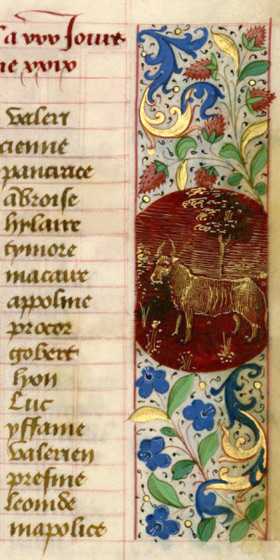 a xxx Jours
ne xxix
valeri
cienne
pancrace
abroise
hylaire
tymore
macaire
appoline
procor
gobert
lyon
Luc
yffame
valerien
presme
leonide
mapolice